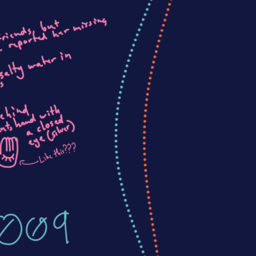 friends, but
reported her missing
salty water in
behind
hand with
a closed
eye (silver)
Like this???
009